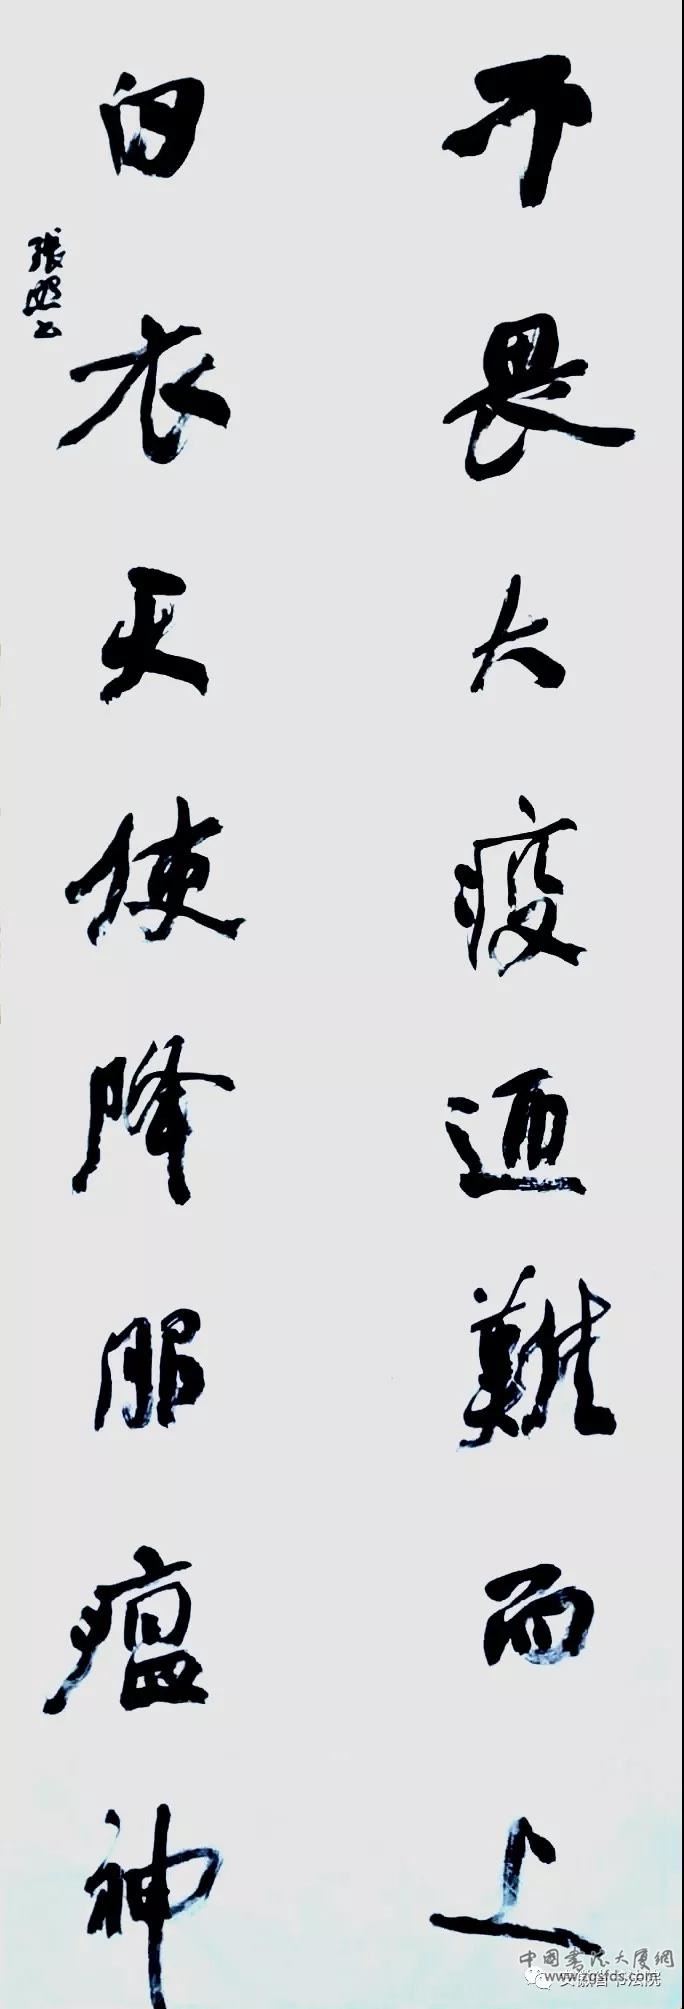 不畏大疫迎難而上
白衣天使降服瘟神
張照书
中國書法大厦網
www.zgsfds.com
安徽省书法院